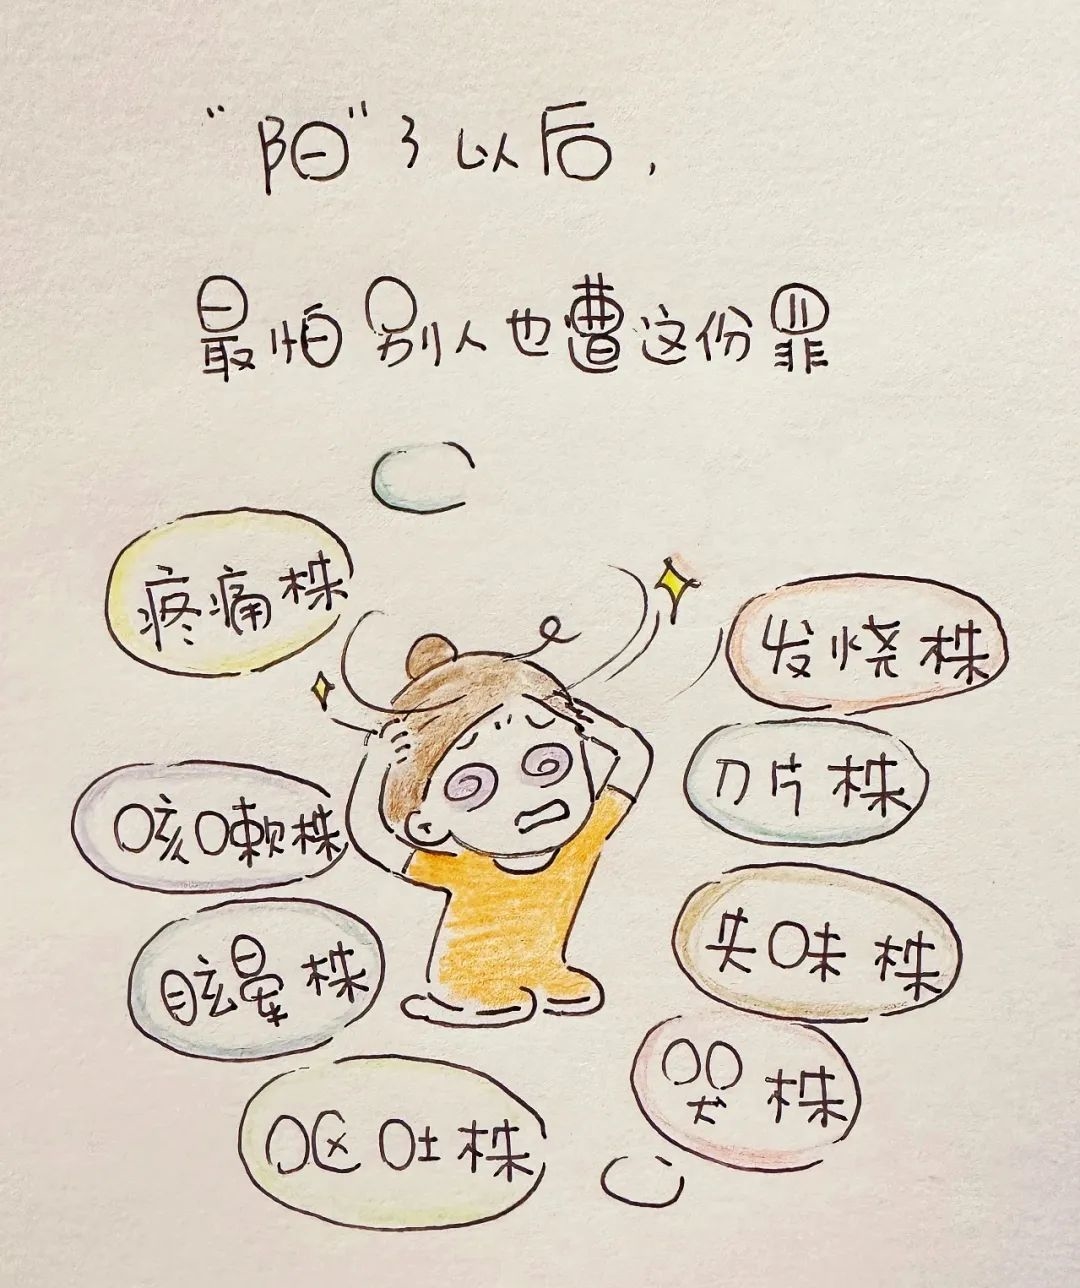 “阳”了以后，
最怕别人也遭这份罪
疼痛株
发烧株
刀片株
咳嗽株
失味株
眩晕株
哭株
呕吐株